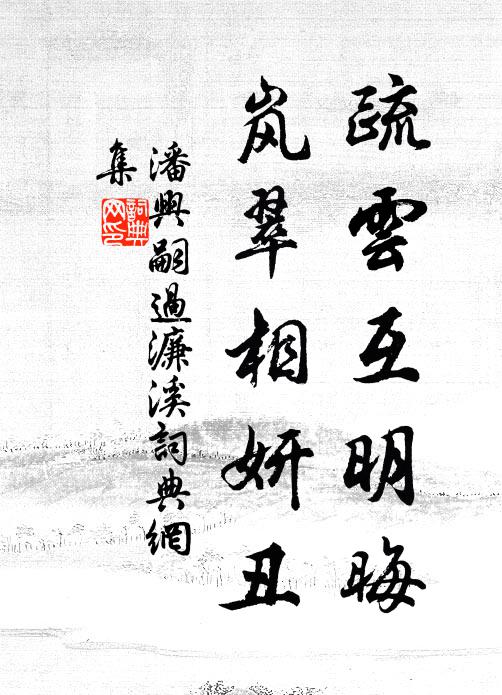 疏雲互明晦
岚翠相妍丑
潘興嗣過濂溪詞典網
集
詞典
网印